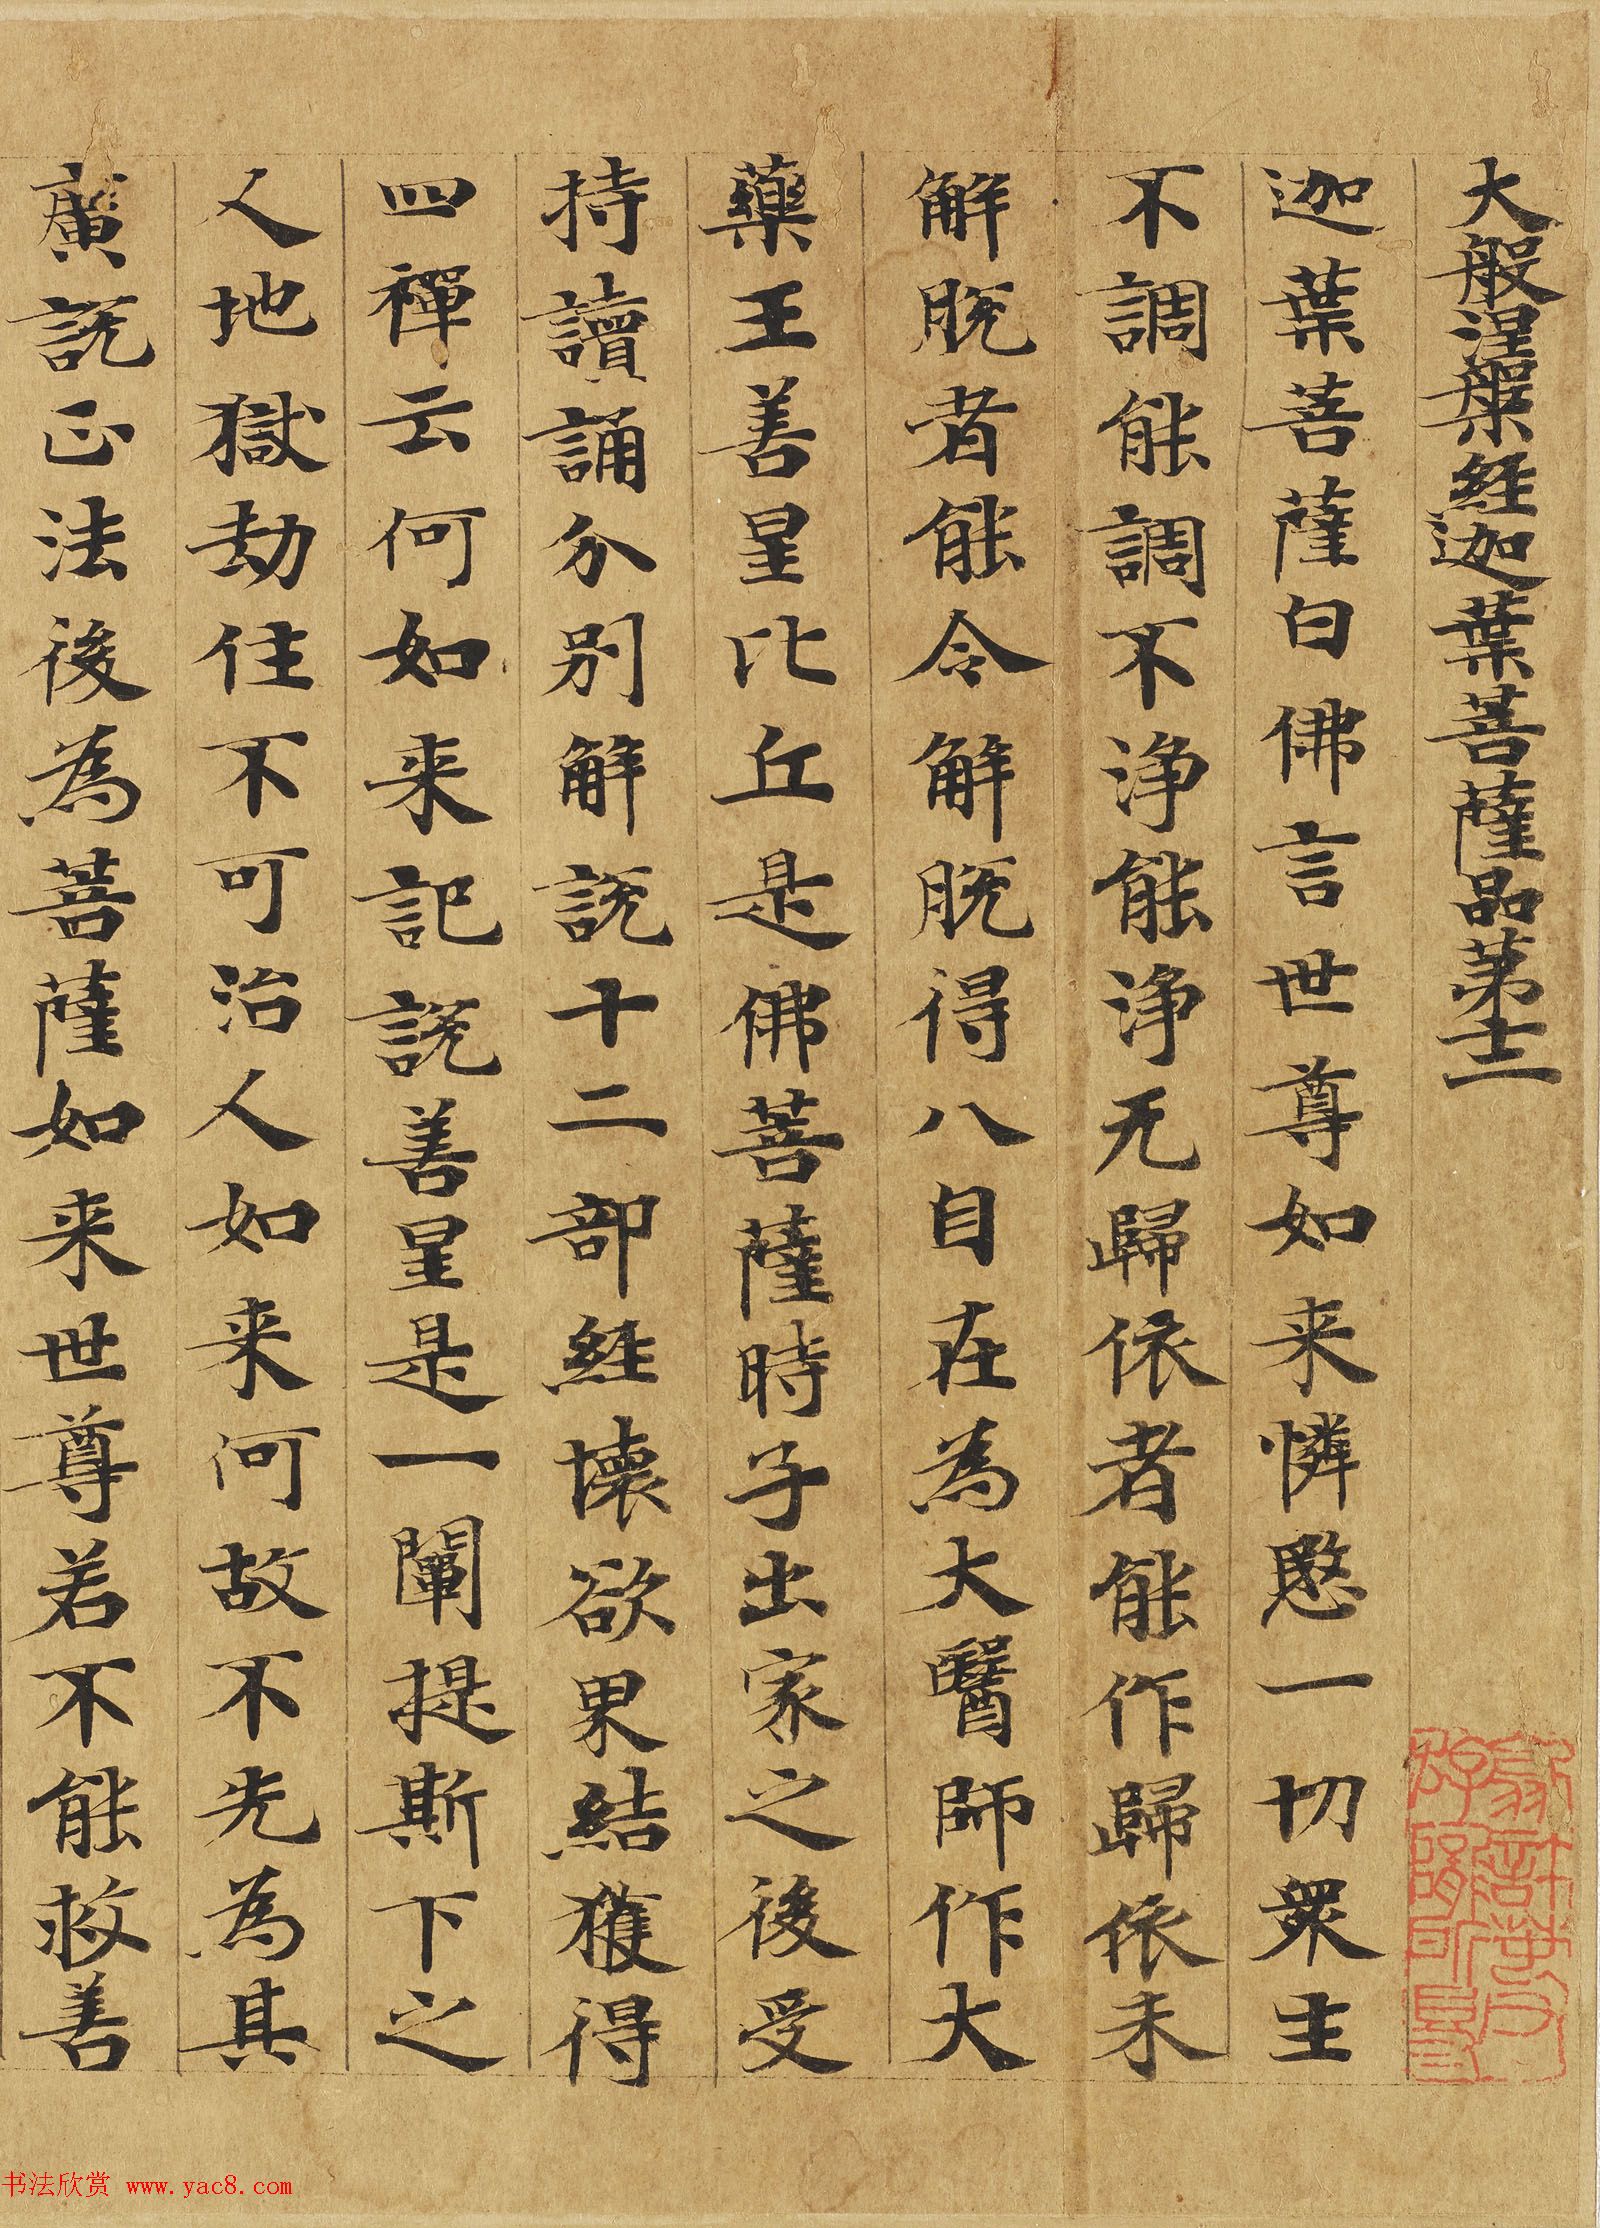 大般涅槃經迦葉菩薩品苐十二
迦葉菩薩白佛言世尊如来憐愍一切衆生
不調能調不淨能淨无歸依者能作歸依未
解脱者能令解脱得八自在為大醫師作大
藥王善星比丘是佛菩薩時子出家之後受
持讀誦分別解説十二部經壞欲界結獲得
四禪云何如来記説善星是一闡提斯下之
人地獄劫住不可治人如来何故不先為其
廣説正法後為菩薩如来世尊若不能救善
书法欣赏 www.yac8.com